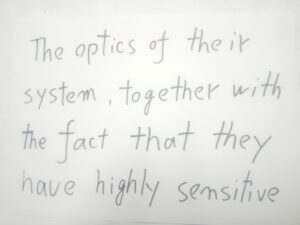 The optics of their
system, together with
the fact that they
have highly sensitive